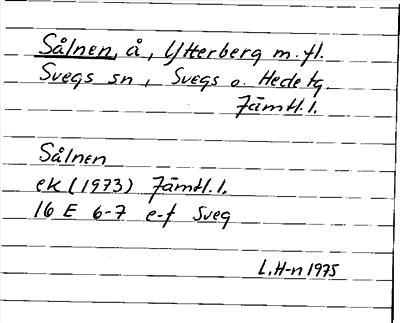 Sålnen, å, Ytterberg m.fl.
Svegs sn, Svegs o. Hede tg.
Jämtl.l.
Sålnen
ek (1973) Jämtl.l.
16 E 6-7 e-f Sveg
L.H-n 1975